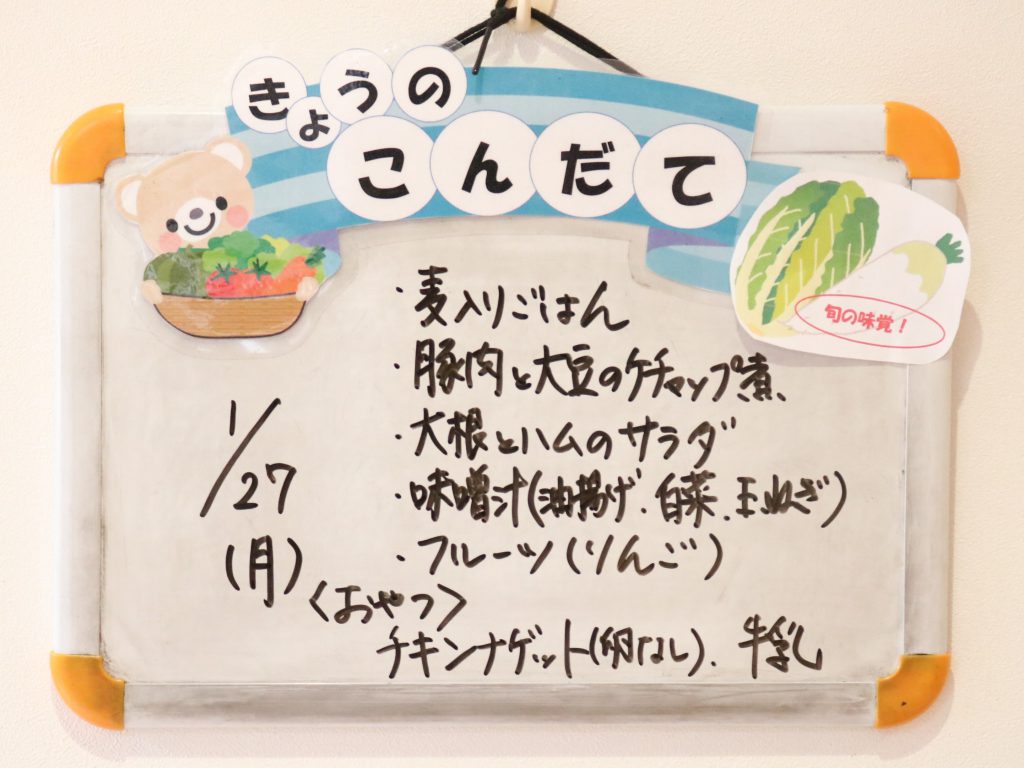 きょうの
こんだて
旬の味覚！
1/27
(月)
・麦入りごはん
・豚肉と大豆のケチャップ煮
・大根とハムのサラダ
・味噌汁(油揚げ、白菜、玉ねぎ)
・フルーツ(りんご)
〈おやつ〉
チキンナゲット(卵なし)、牛乳